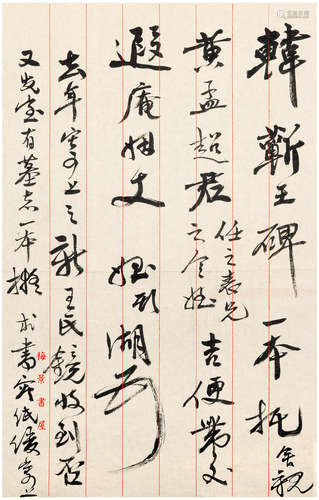 韓蘄王碑一本托舍親
黃孟超君
任之表兄
之令姪
吉便帶交
遐庵姻丈 姪 湖帆
去年寄上之新王氏鏡收到否
又先室有墓志一本擬求書 紙後寄上
梅景書屋